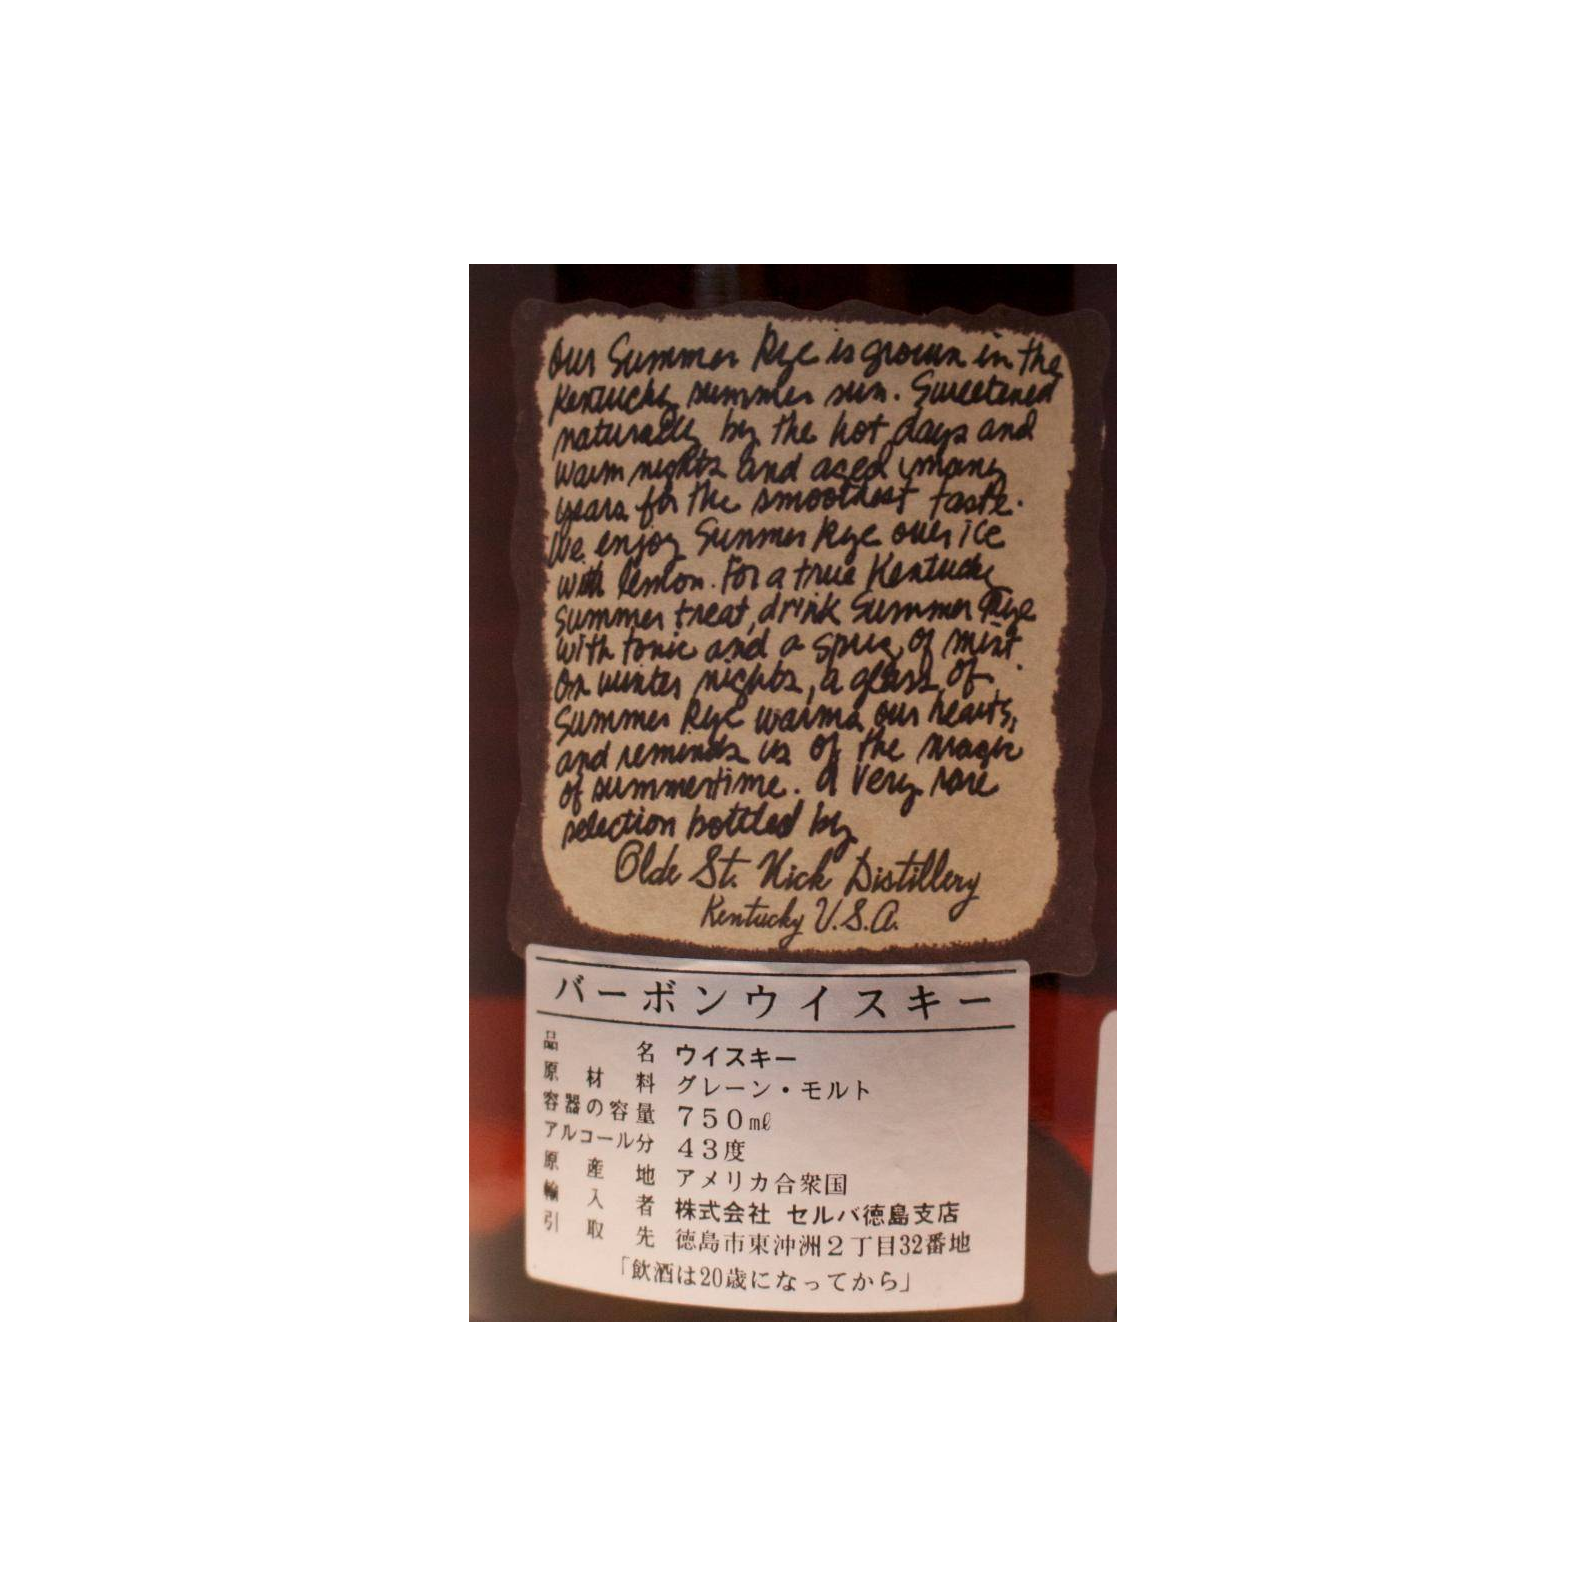 Our Summer Rye is grown in the
Kentucky summer sun. Sweetened
naturally by the hot days and
warm nights and aged many
years for the smoothest taste.
We enjoy Summer Rye over ice
with lemon. For a true Kentucky
Summer treat, drink Summer Rye
with tonic and a sprig of mint.
On winter nights, a glass of
Summer Rye warms our hearts,
and reminds us of the magic
of summertime. A very rare
selection bottled by
Olde St. Nick Distillery
Kentucky U.S.A.
バーボンウイスキー
品名 ウイスキー
原材料 グレーン・モルト
容器の容量 750㎖
アルコール分 43度
原産地 アメリカ合衆国
輸入者 株式会社 セルバ徳島支店
引取先 徳島市東沖洲2丁目32番地
「飲酒は20歳になってから」